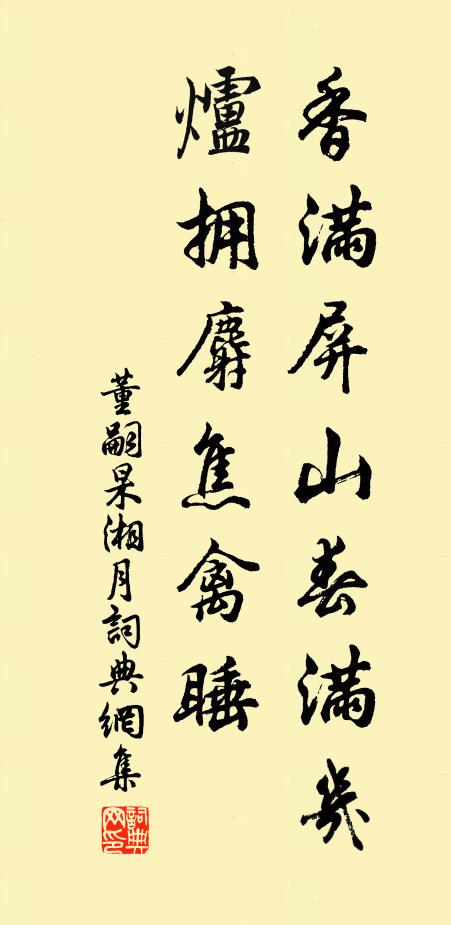 香满屏山春满几
爐拥麝焦禽睡
董嗣杲湘月詞典網集
詞典网印